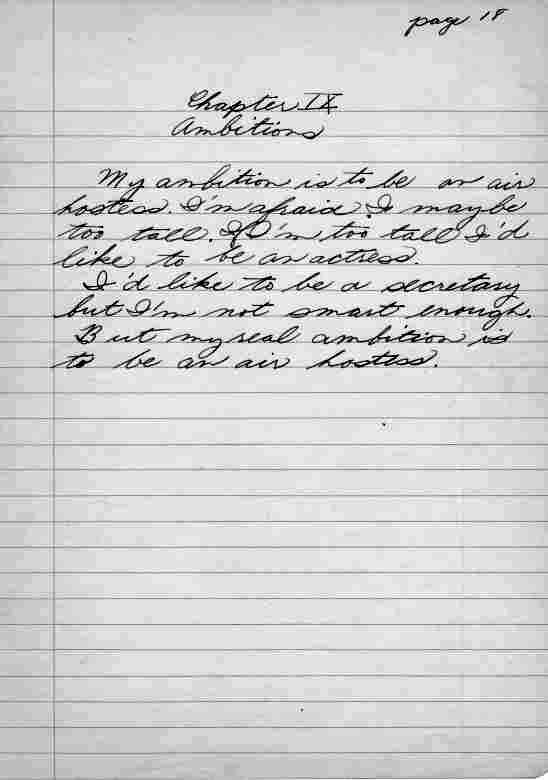 page 18
Chapter IX
Ambitions
My ambition is to be an air
hostess. I'm afraid I maybe
too tall. If I'm too tall I'd
like to be an actress.
I'd like to be a secretary
but I'm not smart enough.
But my real ambition is
to be an air hostess.